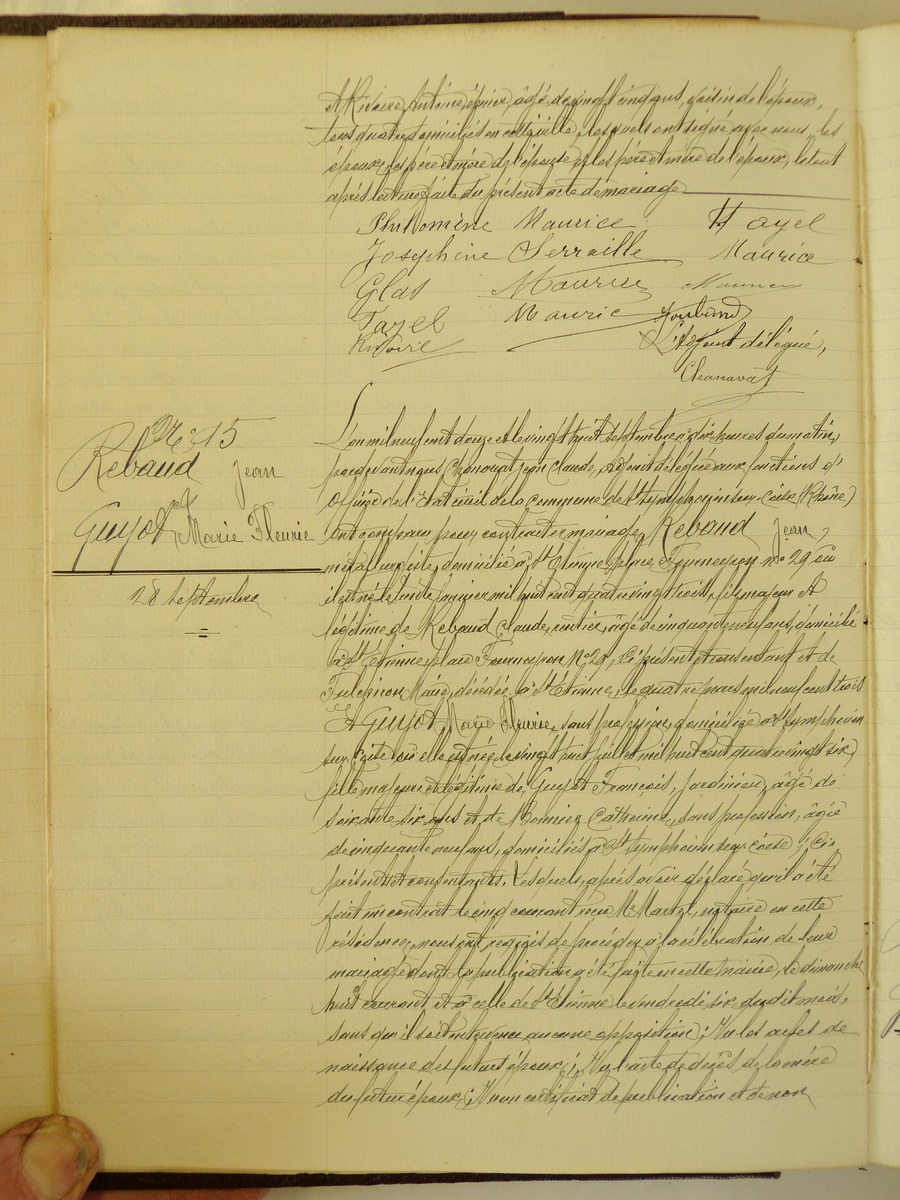 et Rivoire Antoine, épicier, âgé de vingt cinq ans, voisin de l'époux,
tous quatre domiciliés en cette ville, lesquels ont signé avec nous, les
époux, les père et mère de l'épouse et les père et mère de l'époux, le tout
après lecture faite du présent acte de mariage
Philomène Maurice Fayel
Josephine Serraille Maurice
Glas Maurice
Fayel Mauric
Rivoire L'Adjoint délégué,
Chanavat
N° 15
Rebaud Jean
Guyot Marie Fleurie
28 septembre
L'an mil neuf cent douze et le vingt huit septembre à dix heures du matin,
par devant nous Chanavat Jean Claude, Adjoint délégué aux fonctions d'
Officier de l'Etat civil de la commune de St Symphorien sur Coise (Rhône)
ont comparu pour contracter mariage Rebaud Jean,
métallurgiste, domicilié à St Etienne, place Fourneyron n° 29 où
il est né le trente janvier mil huit cent quatre vingt trois, fils majeur et
légitime de Rebaud Claude, rentier, âgé de cinquante neuf ans, domicilié
à St Etienne, place Fourneyron N° 29, ci présent et consentant et de
Marie, décédée à St Etienne, le quatre mars mil neuf cent trois
Et Guyot Marie Fleurie, sans profession, domiciliée à St Symphorien
sur Coise où elle est née le vingt huit juillet mil huit cent quatre vingt six,
fille majeure et légitime de Guyot François, jardinier, âgé de
soixante six ans et de Bonnier Catherine, sans profession, âgée
de cinquante neuf ans, domiciliés à St Symphorien sur Coise, ci
présents et consentants. Lesquels, après avoir déclaré qu'il a été
fait un contrat le cinq courant reçu Me Martel, notaire en cette
résidence, nous ont requis de procéder à la célébration de leur
mariage dont la publication a été faite en cette mairie, le dimanche
huit courant et à celle de St Etienne le vendredi six dudit mois,
sans qu'il soit intervenu aucune opposition; Vu les actes de
naissance des futurs époux; Vu l'acte de décès de la mère
du futur époux; Vu un certificat de publication et de non